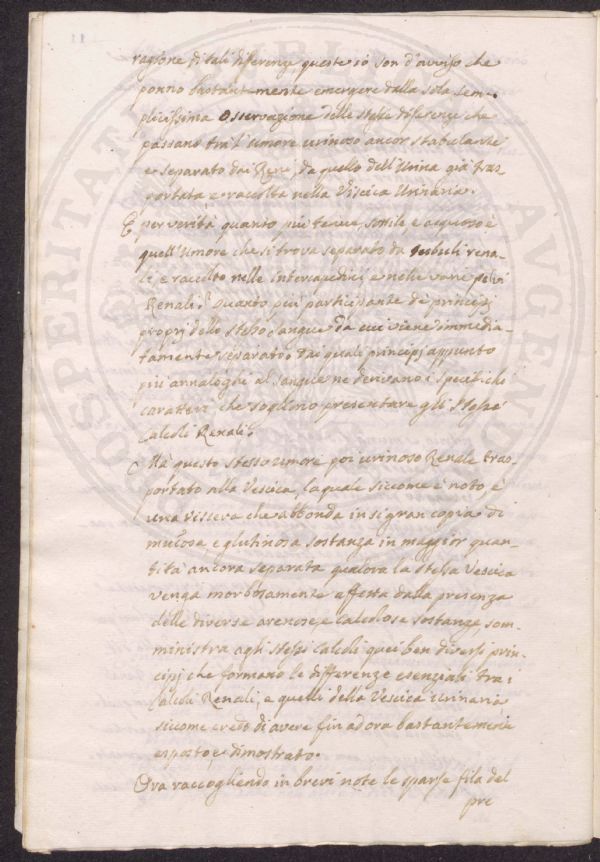 ragione di tali diferenze, queste io son d'avviso che
ponno bastantemente emergere dalla sola sem-
plicissima Osservazione delle stesse diferenze che
passano tra l'Umore urinoso ancor stabulante
e separato dai Reni, da quello dell'Urina già tras-
portata e raccolta nella Viscica Urinaria.
E per verità quanto più tenue, simile e acquoso è
quell'Umore che si trova separato da tubuli rena-
li, e raccolto nelle intercapedini e nelle varie pelvi
Renali? Quanto più participante de principj
proprj dello stesso sangue da cui viene immedia-
tamente separato? Dai quali principj appunto
più annaloghi al sangue ne derivano i specifichi
caratteri che sogliono presentare gli stessi
Calcoli Renali?
Ma questo stesso umore poi urinoso Renale tras-
portato alla Vescica, la quale siccome è noto, è
una viscera che abbonda in sì gran copia di
mucosa, e glutinosa sostanza in maggior quan-
tità ancora separata qualora la stessa Vescica
venga morbosamente affetta dalla presenza
delle diverse arenose, e calcolose sostanze, som-
ministra agli stessi Calcoli quei ben diversi prin-
cipj che formano le differenze esenziali tra i
Calcoli Renali, e quelli della Vescica Urinaria
siccome credo di avere fin ad ora bastantemente
esposto, e dimostrato.
Ora raccogliendo in brevi note le sparse fila del
pre
PROSPERITATI PUBLICAE AUGENDAE
11